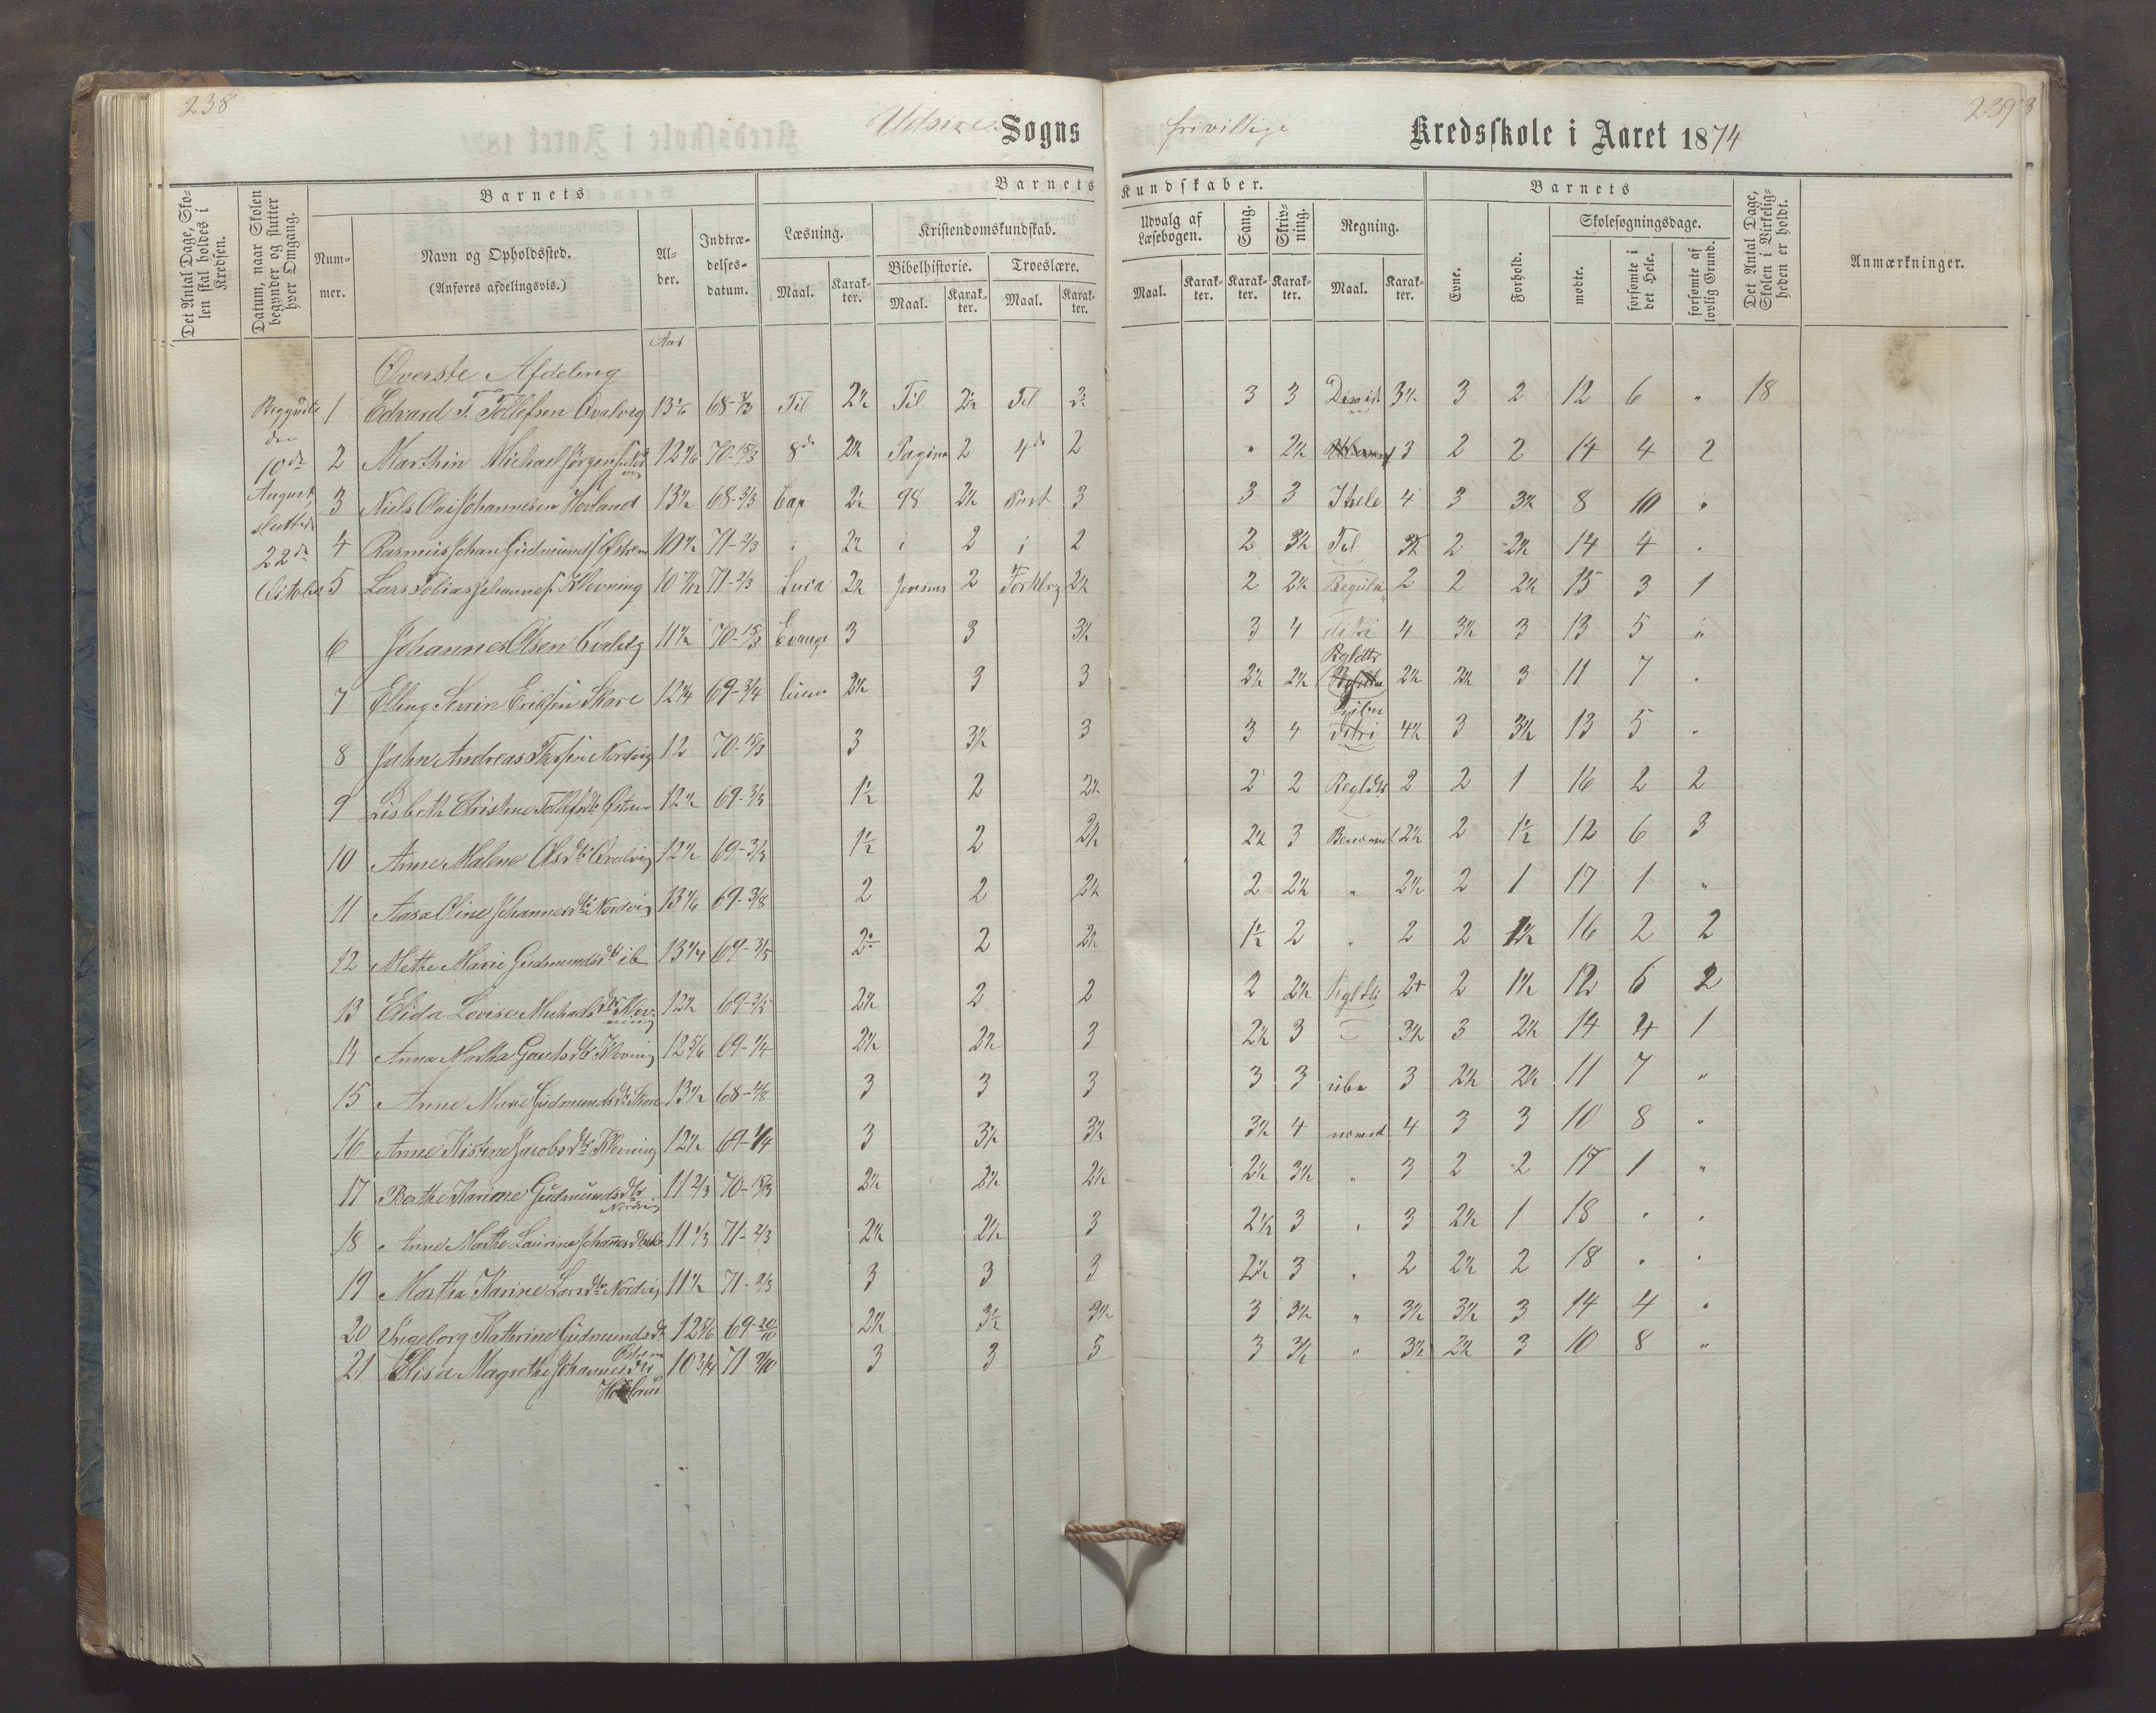 238
239
Udsire Sogns frivillige Kredsskole i Aaret 1874
Det Antal Dage, Skolen skal holdes i Kredsen.
Datum, naar Skolen begynder og slutter hver Omgang.
Barnets
Nummer.
Navn og Opholdssted.
(Anføres afdelingsvis.)
Alder.
Indtrædelsesdatum.
Barnets Kundskaber.
Læsning.
Maal. Karakter.
Kristendomskundskab.
Bibelhistorie.
Maal. Karakter.
Troeslære.
Maal. Karakter.
Udvalg af Læsebogen.
Maal. Karakter.
Sang.
Karakter.
Skrivning.
Karakter.
Regning.
Maal. Karakter.
Barnets
Evne.
Forhold.
Skolesøgningsdage.
mødte.
forsømte i det Hele.
forsømte af lovlig Grund.
Det Antal Dage, Skolen i Virkeligheden er holdt.
Anmærkninger.
Aar
Øverste Afdeling
Begyndte den 10de August, sluttede 22de October
1 Edvard T. Tollefsen Qvalvig 68-3/3 Til 2½ Til 2½ Til 3 3 3½ 3 2 12 6 " 18
2 Marthin Michael Jørgensen 70-15/3 8de 2½ Pagina 2 4de 2 " 2½ 3 2 2 14 4 2
3 Niels Olai Johannesen Hovland 13½ 68-3/3 Cap 2½ 98 2½ Part 3 3 3 Ihele 4 3 3½ 8 10 "
4 Rasmus Johan Gudmunds Østrem 10½ 71-2/3 i 2½ i 2 i 2 2 3½ Tal 3½ 2 2½ 14 4 "
5 Lars Tobias Johannes. Klovning 71-2/3 Luca 2½ Jensens 2 2½ 2 2½ 2 2 2½ 15 3 1
6 Johannes Olsen Qvalvig 11½ 70-15/3 Evange 3 3 3½ 3 4 detri 4 3½ 3 13 5 "
7 Elling Severin Eriksen Skare 69-3/4 lium 2½ 3 3 2½ 2½ Rgldtr 2½ 2½ 3 11 7 "
8 John Andreas Nordvig 12 70-15/3 3 3½ 3 3 4 detri 4½ 3 3½ 13 5 "
9 Lisbeth Christine Tollefsdtr Østrem 12½ 69-3/3 1½ 2 2½ 2 2 Regldtr 2 2 1 16 2 2
10 Anne Malene Olsdtr Qvalvig 12½ 69-3/3 1½ 2 2½ 2½ 3 Benævnt 2½ 2 1½ 12 6 3
11 Aasa Oline Johannesdtr Nordvig 69-3/8 2 2 2½ 2 2½ " 2½ 2 1 17 1 "
12 Methe Marie Gudmundsdtr ib 13¼ 69-3/5 2 2 2½ 1½ 2 " 2 2 1½ 16 2 2
13 Elida Lovise Michaelsdtr Klovning 12½ 69-3/5 2½ 2 2 2 2½ Rgldtr 2+ 2 1½ 12 6 2
14 Anna Martha Gautsdtr Klovning 12 5/6 69-1/4 2½ 2½ 3 2½ 3 3½ 3 2½ 14 4 1
15 Anne Marie Gudmundsdtr Skare 13½ 3 3 3 3 3 ube 3 2½ 2½ 11 7 "
16 Anne Kistine Jacobsdtr Klovning 12½ 69-1/4 3 3½ 3½ 3½ 4 nævnt 4 3 3 10 8 "
17 Berthe Karine Gudmundsdtr Nordvig 11 2/3 70-15/3 2½ 2½ 2½ 2½ 3½ " 3 2 2 17 1 "
18 Anne Marthe Laurine Johannesdtr 11 1/3 71-2/3 2½ 2½ 3 2½ 3 " 3 2½ 1 18 " "
19 Martha Karine Larsdtr Nordvig 11½ 71-2/3 3 3 3 2½ 3 " 2 2½ 2 18 " "
20 Ingeborg Kathrine Gudmundsdtr Østrem 12 5/6 69-20/10 2½ 3½ 3½ 3 3½ " 3½ 3½ 3 14 4 "
21 Elisa Magrethe Johannesdtr Hovland 10 3/4 3 3 3 3 3½ " 3½ 2½ 3 10 8 "